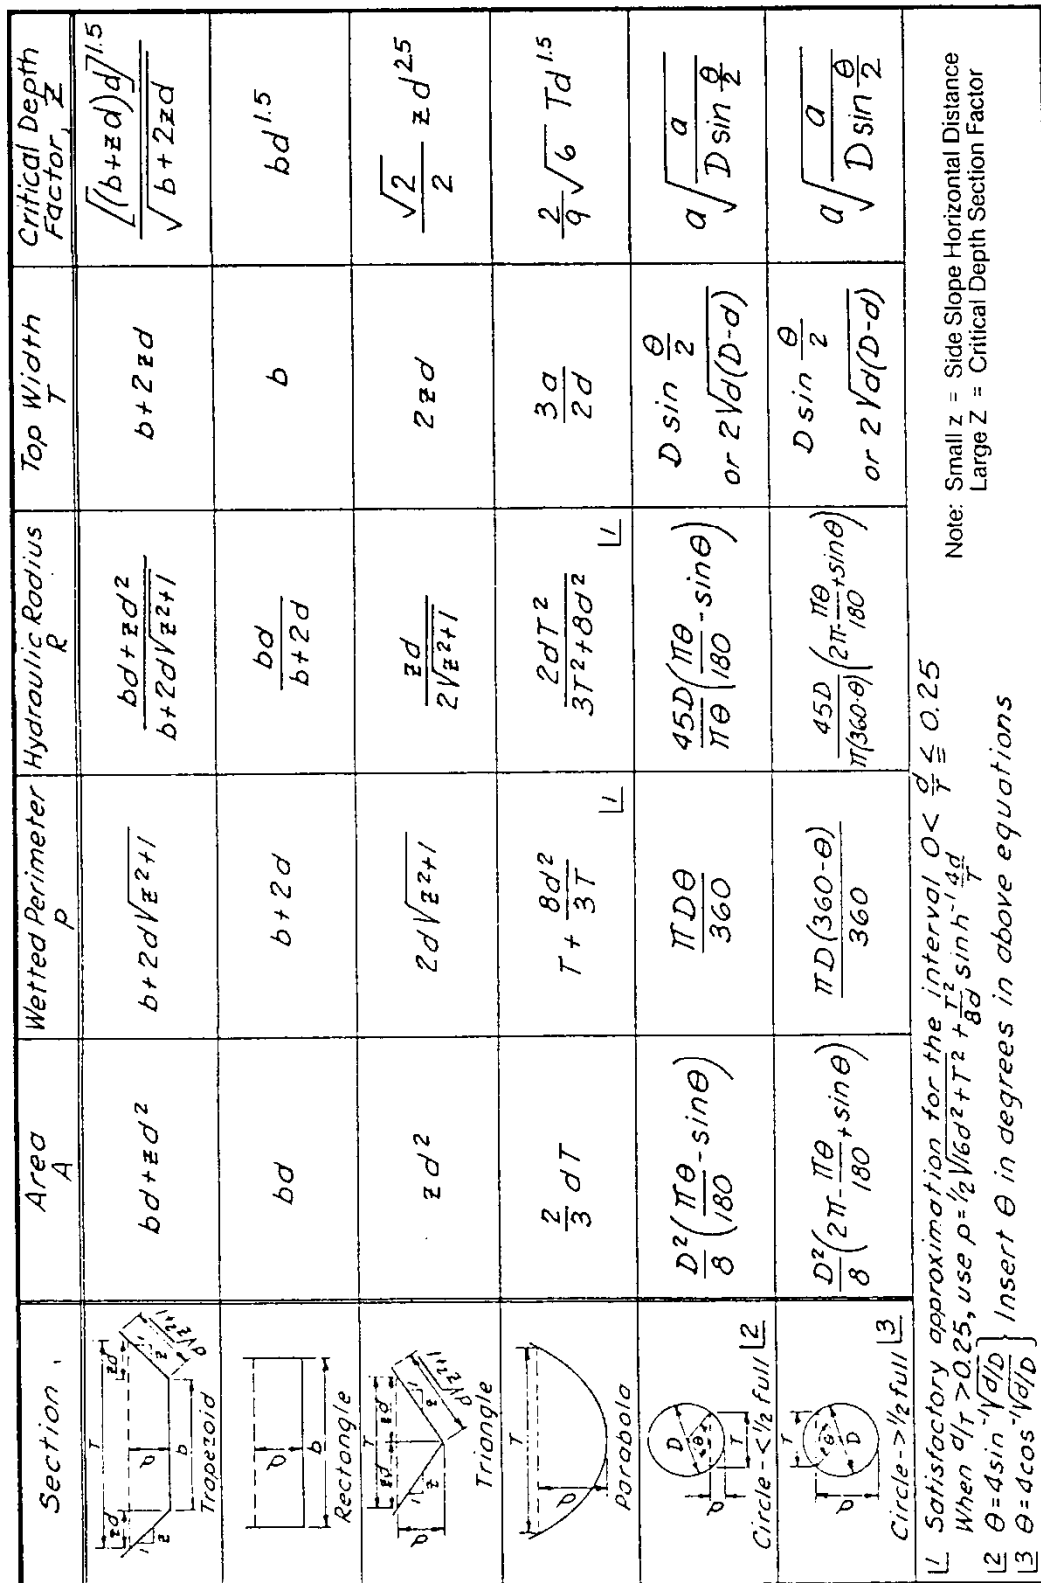 Section Area A Wetted Perimeter p Hydraulic Radius R Top Width T Critical Depth Factor, Z
Trapezoid bd+zd² b+2d√(z²+1) (bd+zd²)/(b+2d√(z²+1)) b+2zd [(b+zd)d]^1.5/√(b+2zd)
T zd zd d b 1 z 1 z d√(z²+1)
Rectangle bd b+2d bd/(b+2d) b bd^1.5
d b
Triangle zd² 2d√(z²+1) zd/(2√(z²+1)) 2zd (√2/2) zd^2.5
T zd zd d 1 z 1 z d√(z²+1)
Parabola 2/3 dT T + 8d²/3T |1 2dT²/(3T²+8d²) |1 3a/2d 2/9 √6 Td^1.5
T d
Circle-<1/2 full |2 D²/8 (πθ/180 - sinθ) πDθ/360 45D/πθ (πθ/180 - sinθ) D sin θ/2 or 2√(d(D-d)) a√(a/(D sin θ/2))
D θ T d
Circle->1/2 full |3 D²/8 (2π - πθ/180 + sinθ) πD(360-θ)/360 45D/π(360-θ) (2π - πθ/180 + sinθ) D sin θ/2 or 2√(d(D-d)) a√(a/(D sin θ/2))
T θ D d
|1 Satisfactory approximation for the interval 0< d/T ≦ 0.25
When d/T >0.25, use p=1/2√(16d²+T²) + T²/8d sinh⁻¹ 4d/T
|2 θ=4sin⁻¹√(d/D)
|3 θ=4cos⁻¹√(d/D) } Insert θ in degrees in above equations
Note: Small z = Side Slope Horizontal Distance
Large Z = Critical Depth Section Factor